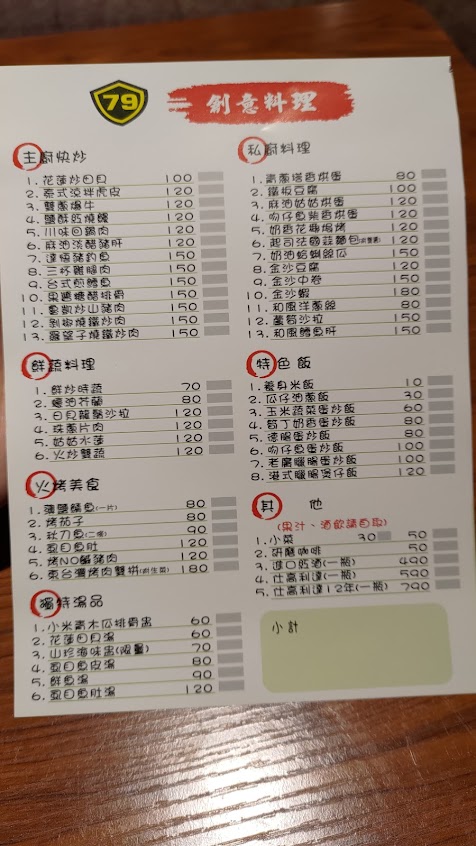 79
創意料理
主廚快炒
1. 花蓮炒曰貝 100
2. 泰式涼拌虎皮 120
3. 雙蔥爆牛 120
4. 鹽酥旺燒鱧 120
5. 川味回鍋肉 120
6. 麻油淡醋豬肝 120
7. 達悟豬釣魚 150
8. 三杯雞腿肉 150
9. 台式煎鱈魚 150
10. 果醬糖醋排骨 150
11. 魯凱炒山豬肉 150
12. 剝椒燒鐵炒肉 150
13. 羅望子燒鐵炒肉 150
鮮蔬料理
1. 鮮炒時蔬 70
2. 蠔油芥蘭 80
3. 曰貝龍鬚沙拉 120
4. 珠蔥片肉 120
5. 姑姑水蓮 120
6. 火炒雙蔬 120
火烤美食
1. 薄鹽鯖魚(一片) 80
2. 烤茄子 80
3. 秋刀魚(二條) 90
4. 虱目魚肚 120
5. 烤NO鹹豬肉 120
6. 東台灣烤肉雙拼(附生菜) 180
獨特湯品
1. 小米青木瓜排骨盅 60
2. 花蓮曰貝湯 60
3. 山珍海味盅(限量) 70
4. 虱目魚皮湯 80
5. 鮮魚湯 90
6. 虱目魚肚湯 120
私廚料理
1. 青蔥塔香烘蛋 80
2. 鐵板豆腐 100
3. 麻油姑姑烘蛋 120
4. 吻仔魚紫香烘蛋 120
5. 奶香花椰焗烤 120
6. 起司法國蒜麵包 120
7. 奶油蛤蜊絲瓜 150
8. 金沙豆腐 120
9. 金沙中卷 150
10. 金沙蝦 180
11. 和風洋蔥絲 80
12. 蘆筍沙拉 150
13. 和風鱈魚肝 150
特色飯
1. 養身米飯 10
2. 瓜仔油蔥飯 30
3. 玉米蔬菜蛋炒飯 60
4. 筍丁奶香蛋炒飯 80
5. 德腸蛋炒飯 80
6. 吻仔魚蛋炒飯 100
7. 老廣臘腸蛋炒飯 100
8. 港式臘腸煲仔飯 120
其 他
(果汁、酒飲請自取)
1. 小菜 30 50
2. 研磨咖啡 50
3. 進口奶酒(一瓶) 490
4. 仕高利達(一瓶) 590
5. 仕高利達12年(一瓶) 790
小計